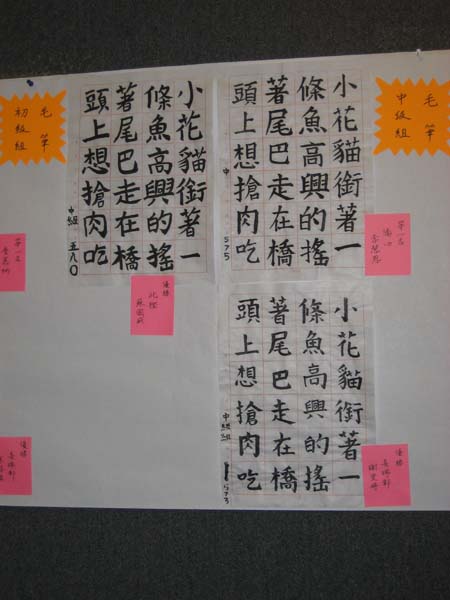 毛筆
中級組
小花貓銜著一
條魚高興的搖
著尾巴走在橋
頭上想搶肉吃
中
575
第一名
小花貓銜著一
條魚高興的搖
著尾巴走在橋
頭上想搶肉吃
中級組
573
優勝
小花貓銜著一
條魚高興的搖
著尾巴走在橋
頭上想搶肉吃
中組 五八〇
優勝
毛筆
初級組
第一名
優勝